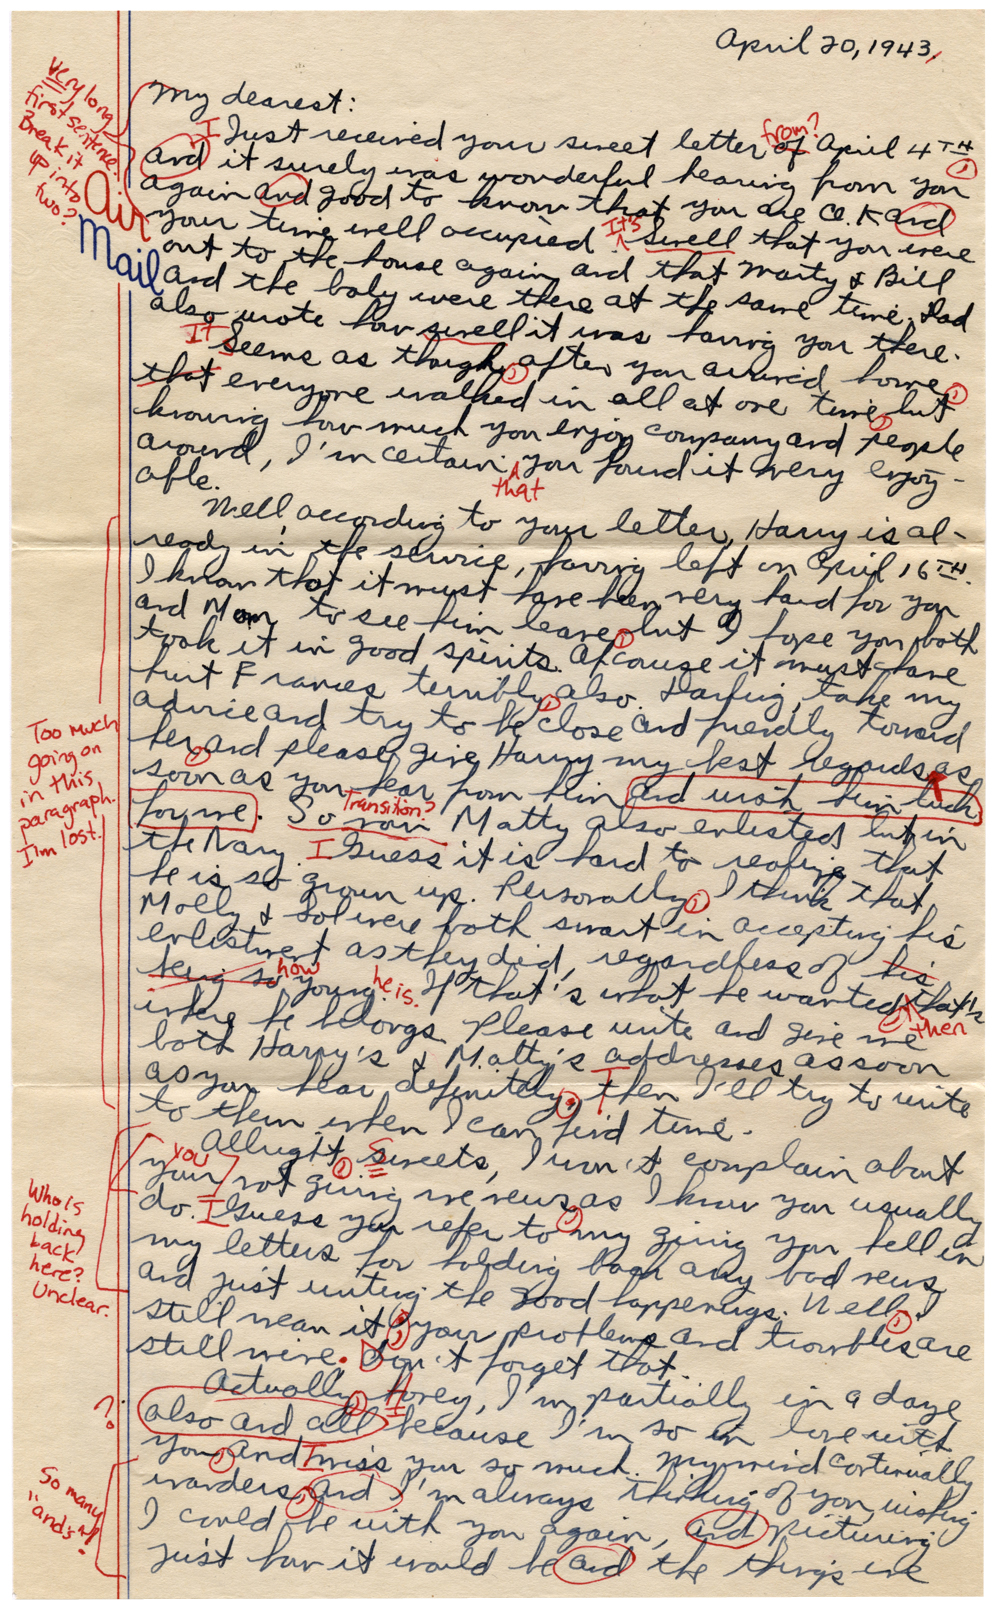 April 20, 1943,
My dearest:
very long
first sentence!
Break it
up into
two?
Air
Mail
from?
I Just received your sweet letter of April 4TH,
and it surely was wonderful hearing from you
again and good to know that you are O.K and
your time well occupied. It's Swell that you were
out to the house again and that Marty & Bill
and the baby were there at the same time. Dad
also wrote how swell it was having you there.
It Seems as though, after you arrived home,
that everyone walked in all at one time, but
knowing how much you enjoy company and people
around, I'm certain you found it very enjoy-
that
able.
Well, according to your letter, Harry is al-
ready in the service, having left on April 16TH.
I know that it must have been very hard for you
and Mom to see him leave, but I hope you both
took it in good spirits. Of course it must have
hurt Frances terribly, also. Darling, take my
advice and try to be close and friendly toward
her, and please give Harry my best regards as
soon as you hear from him and wish him luck
Too much
going on
in this
paragraph.
I'm lost!
Transition?
for me. So now Matty also enlisted, but in
the Navy. I Guess it is hard to realize that
he is so grown up. Personally, I think that
Molly & Sol were both smart in accepting his
enlistment as they did, regardless of his
being so how young he is. If that's what he wanted, that's
then
where he belongs. Please write and give me
both Harry's & Matty's addresses as soon
as you hear definitely, then I'll try to write
to them when I can find time.
Allright, Sweets, I won't complain about
you
your not giving me news, as I know you usually
do. I Guess you refer to my giving you hell in
my letters for holding back any bad news,
and just writing the good happenings. Well, I
still mean it; your problems and troubles are
still mine. Don't forget that.
Who is
holding
back
here?
Unclear.
Actually, honey, I'm partially in a daze
?
also and all because I'm so in love with
you, and I miss you so much. My mind continually
wanders, and I'm always thinking of you, wishing
I could be with you again, and picturing
just how it would be and the things we
So many
"ands"!